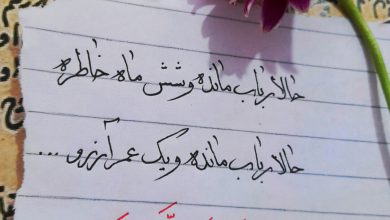 حالا رباب مانده و شش ماه خاطره
حالا رباب مانده و یک عمر آرزو ...